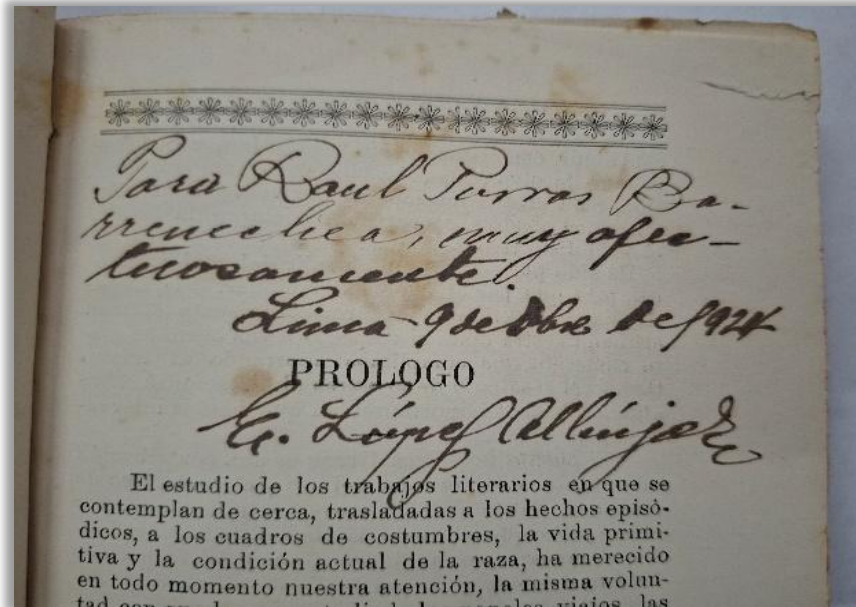 Para Raul Porras Ba-
rrenechea, muy afec-
tuosamente.
Lima 9 de Dbre de 1924
PROLOGO
E. López Albújar
El estudio de los trabajos literarios en que se
contemplan de cerca, trasladadas a los hechos episó-
dicos, a los cuadros de costumbres, la vida primi-
tiva y la condición actual de la raza, ha merecido
en todo momento nuestra atención, la misma volun-